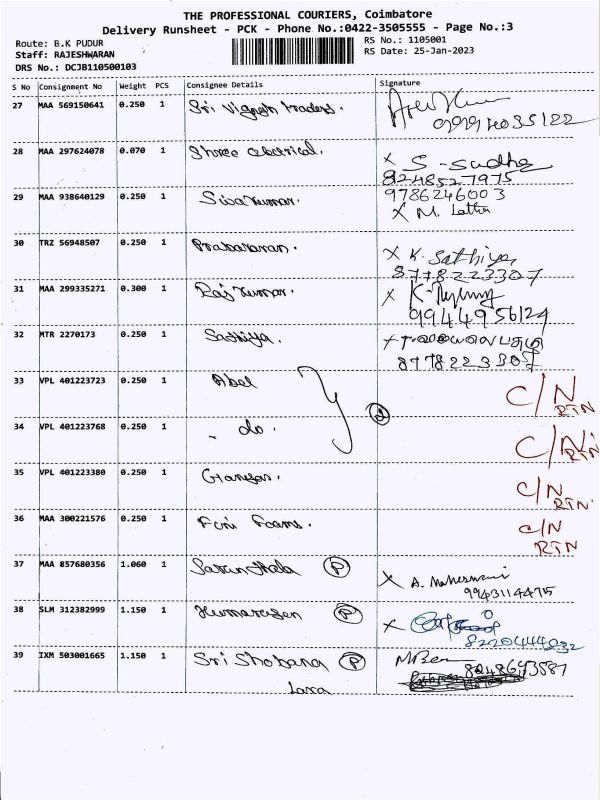 THE PROFESSIONAL COURIERS, Coimbatore
Delivery Runsheet - PCK - Phone No.:0422-3505555 - Page No.:3
Route: B.K PUDUR
RS No.: 1105001
Staff: RAJESHWARAN
RS Date: 25-Jan-2023
DRS No.: DCJB110500103
S No Consignment No Weight PCS Consignee Details Signature
27 MAA 569150641 0.250 1 Sri Vignesh traders.
28 MAA 297624078 0.070 1 Shree electrical. x S-Sudha
8248527975
29 MAA 938640129 0.250 1 Sivakumar. 9786246003
x M. Latha
30 TRZ 56948507 0.250 1 Prabakaran. x K. Sathiya
8778223307
31 MAA 299335271 0.300 1 Rajkumar. x
9944956124
32 MTR 2270173 0.250 1 Sathiya.
8778223307
33 VPL 401223723 0.250 1 Abel C/N RTN
34 VPL 401223768 0.250 1 - do. 2 C/N RTN
35 VPL 401223380 0.250 1 Ganesan. C/N RTN
36 MAA 300221576 0.250 1 Foams. C/N
RTN
37 MAA 857680356 1.060 1 P x A. Maheswari
9943114475
38 SLM 312382999 1.150 1 Kumaresen P x
8220444032
39 IXM 503001665 1.150 1 Sri Shobana P
8248643587